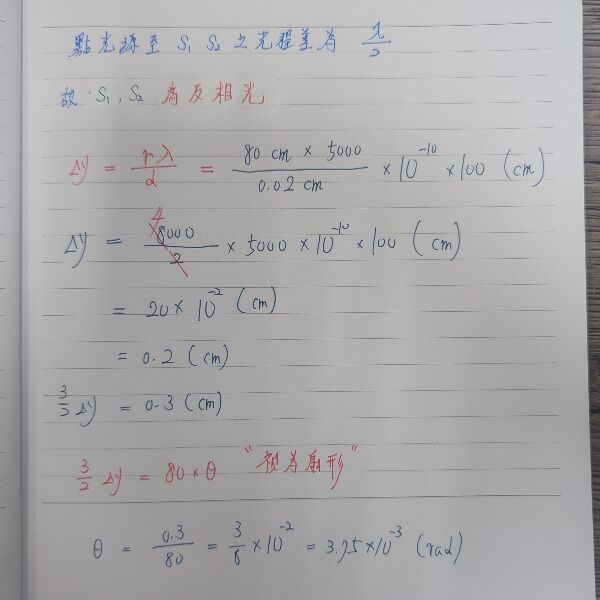 點光源至 S₁ S₂ 之光程差為 λ/2
故 S₁, S₂ 為反相光
Δy = rλ/d = 80 cm × 5000 / 0.02 cm × 10⁻¹⁰ × 100 (cm)
Δy = 8000/2 × 5000 × 10⁻¹⁰ × 100 (cm) 4
= 20 × 10⁻² (cm)
= 0.2 (cm)
3/2 Δy = 0.3 (cm)
3/2 Δy = 80 × θ "視為扇形"
θ = 0.3/80 = 3/8 × 10⁻² = 3.75 × 10⁻³ (rad)